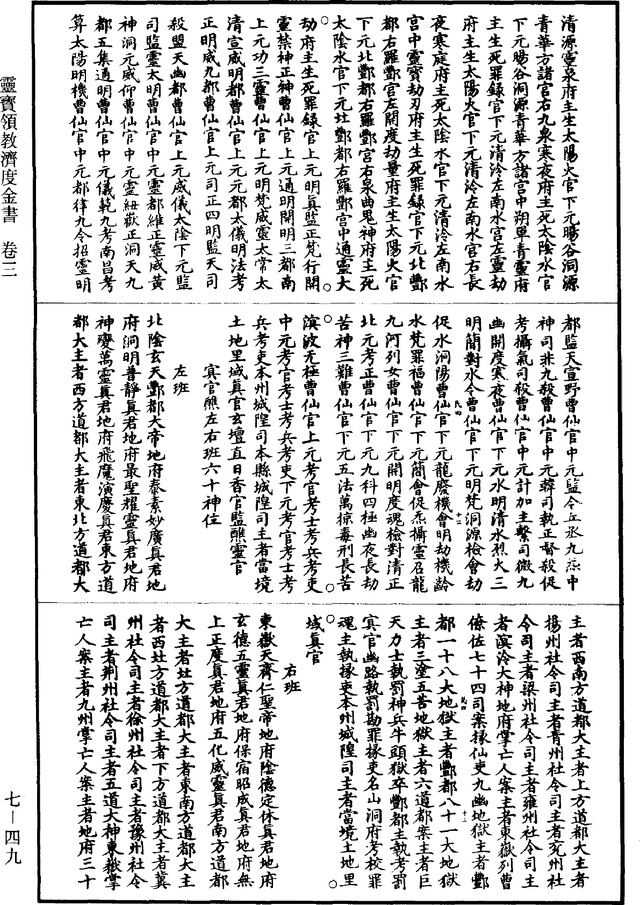 靈寶領教濟度金書　卷三
清源靈泉府主生太陽火官下元暘谷洞源
青華方諸宮右九泉寒夜府主死太陰水官
下元暘谷洞源青華方諸宮中朔單青靈府
主生死罪錄官下元清泠左南水宮左靈劫
府主生太陽火官下元清泠左南水宮右長
夜寒庭府主死太陰水官下元清泠左南水
宮中靈寶劫刃府主生死罪錄官下元北酆
都右羅酆宮左開度劫量府主生太陽火官
下元北酆都右羅酆宮右泉曲鬼神府主死
太陰水官下元北酆都右羅酆宮中通靈大
劫府主生死罪錄官上元明真監正梵行開
靈禁神正神曹仙官上元通明開明三都南
上元功三靈曹仙官上元明梵威靈太常太
清宣威明都曹仙官上元元都太儀明法考
正明威九都曹仙官上元司正四明監天司
殺盟天幽都曹仙官上元威儀太陰下元監
司監靈太明曹仙官中元靈都維正靈威黃
神洞元威仰曹仙官中元靈紐歡正洞天九
都五集通明曹仙官中元儀範九考南昌考
算太陽明機曹仙官中元都律九令招靈明
都監天宣野曹仙官中元監令丘丞九炁中
神司非九殺曹仙官中元韓司執正督殺促
考攝氣司殺曹仙官中元計加主繫司微九
幽開度寒夜曹仙官下元水明清水烈火三
明簡對水令曹仙官下元明梵洞源檢會劫
促水洞陽曹仙官下元龍廢機會明劫機齡
水梵罪福曹仙官下元簡會促炁攝靈召龍
九河列女曹仙官下元開明度魂檢對清正
北元考正曹仙官下元九科四極幽夜長劫
苦神三難曹仙官下元五法萬掠毒刑長苦
滨波无極曹仙官上元考官考士考兵考吏
中元考官考士考兵考吏下元考官考士考
兵考吏本州城隍司本縣城隍司主者當境
土地里域真官玄壇直日香官監醮靈官
冥官醮左右班六十神位
左班
北陰玄天酆都大帝地府泰素妙廣真君地
府洞明普靜真君地府最聖耀靈真君地府
神變萬靈真君地府飛魔演慶真君東方道
都大主者西方道都大主者東北方道都大
主者西南方道都大主者上方道都大主者
揚州社令司主者青州社令司主者兖州社
令司主者梁州社令司主者雍州社令司主
者滨泠大神地府掌亡人案主者東嶽列曹
僚佐七十四司案掾仙吏九幽地獄主者酆
都一十八大地獄主者酆都八十一大地獄
主者三塗五苦地獄主者六道都案主者巨
天力士執罰神兵牛頭獄卒酆都主執考罰
冥官幽路執罰勘罪掾吏名山洞府考校罪
魂主執掾吏本州城隍司主者當境土地里
域真官
右班
東嶽天齊仁聖帝地府陰德定休真君地府
玄德五靈真君地府保宿昭成真君地府無
上正度真君地府五化威靈真君南方道都
大主者北方道都大主者東南方道都大主
者西北方道都大主者下方道都大主者冀
州社令司主者徐州社令司主者豫州社令
司主者荆州社令司主者五道大神東嶽掌
亡人案主者九州掌亡人案主者地府三十
七—四九